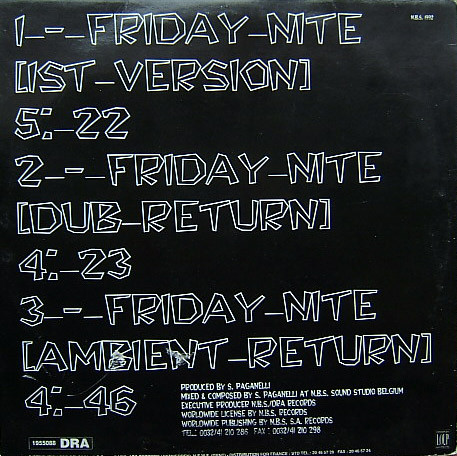 N.B.S. 4002
1_-_FRIDAY_NITE
[1ST_VERSION]
5:_22
2_-_FRIDAY_NITE
[DUB_RETURN]
4:_23
3_-_FRIDAY_NITE
[AMBIENT_RETURN]
4:_46
PRODUCED BY S. PAGANELLI
MIXED & COMPOSED BY S. PAGANELLI AT N.B.S. SOUND STUDIO BELGIUM
EXECUTIVE PRODUCER N.B.S./DRA RECORDS
WORLDWIDE LICENSE BY N.B.S. RECORDS
WORLDWIDE PUBLISHING BY N.B.S. S.A. RECORDS
TEL.: 0032/41 210 286 FAX : 0032/41 210 298
1955088 DRA
DISTRIBUTION FOR FRANCE : UTD TEL - 20 46 57 29 FAX - 20 46 57 24